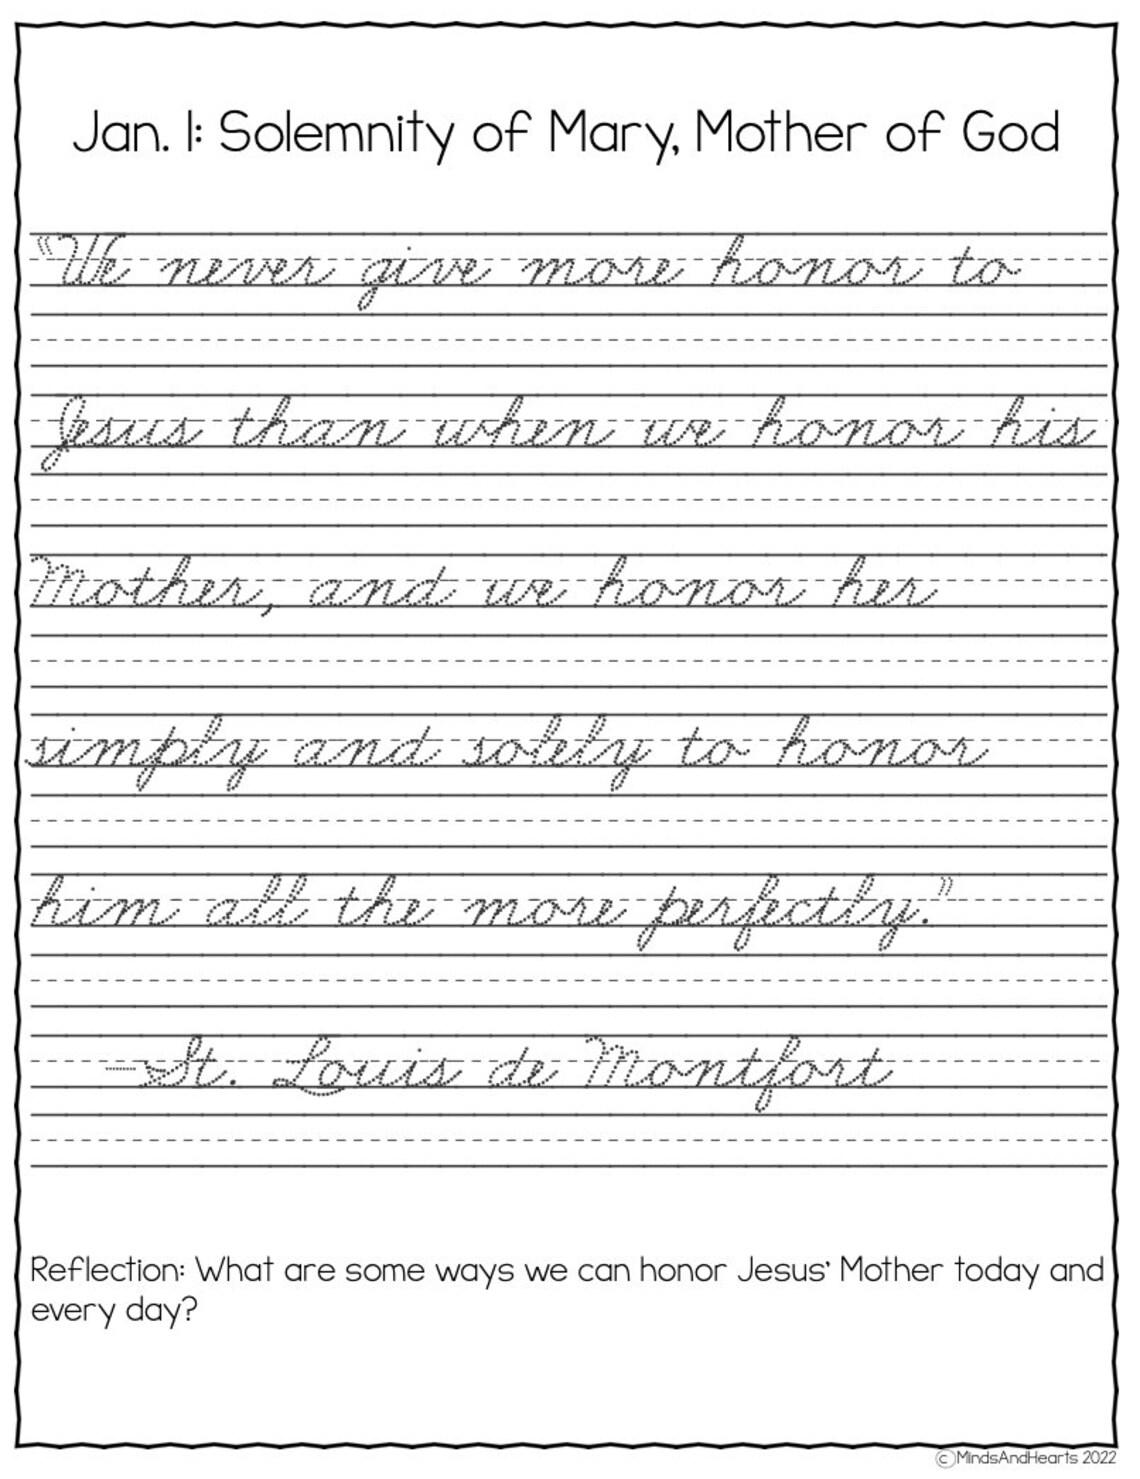 Jan. 1: Solemnity of Mary, Mother of God
"We never give more honor to
Jesus than when we honor his
Mother, and we honor her
simply and solely to honor
him all the more perfectly."
-St. Louis de Montfort
Reflection: What are some ways we can honor Jesus' Mother today and
every day?
©MindsAndHearts 2022